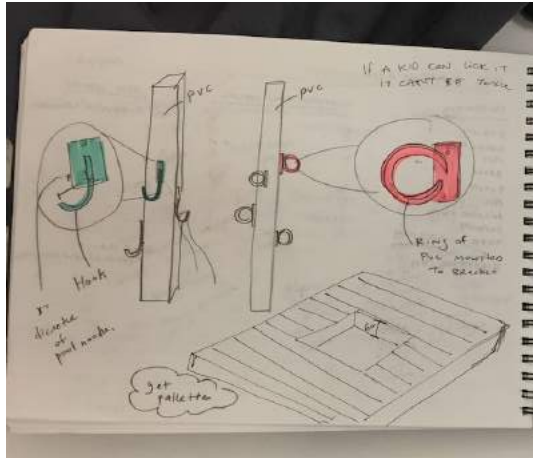 IF A KID CAN LICK IT
IT CAN'T BE TOXIC
PVC
PVC
Hook
diameter
of
pool noodle.
RING OF
PVC MOUNTED
TO BRACKET
get
pallettes